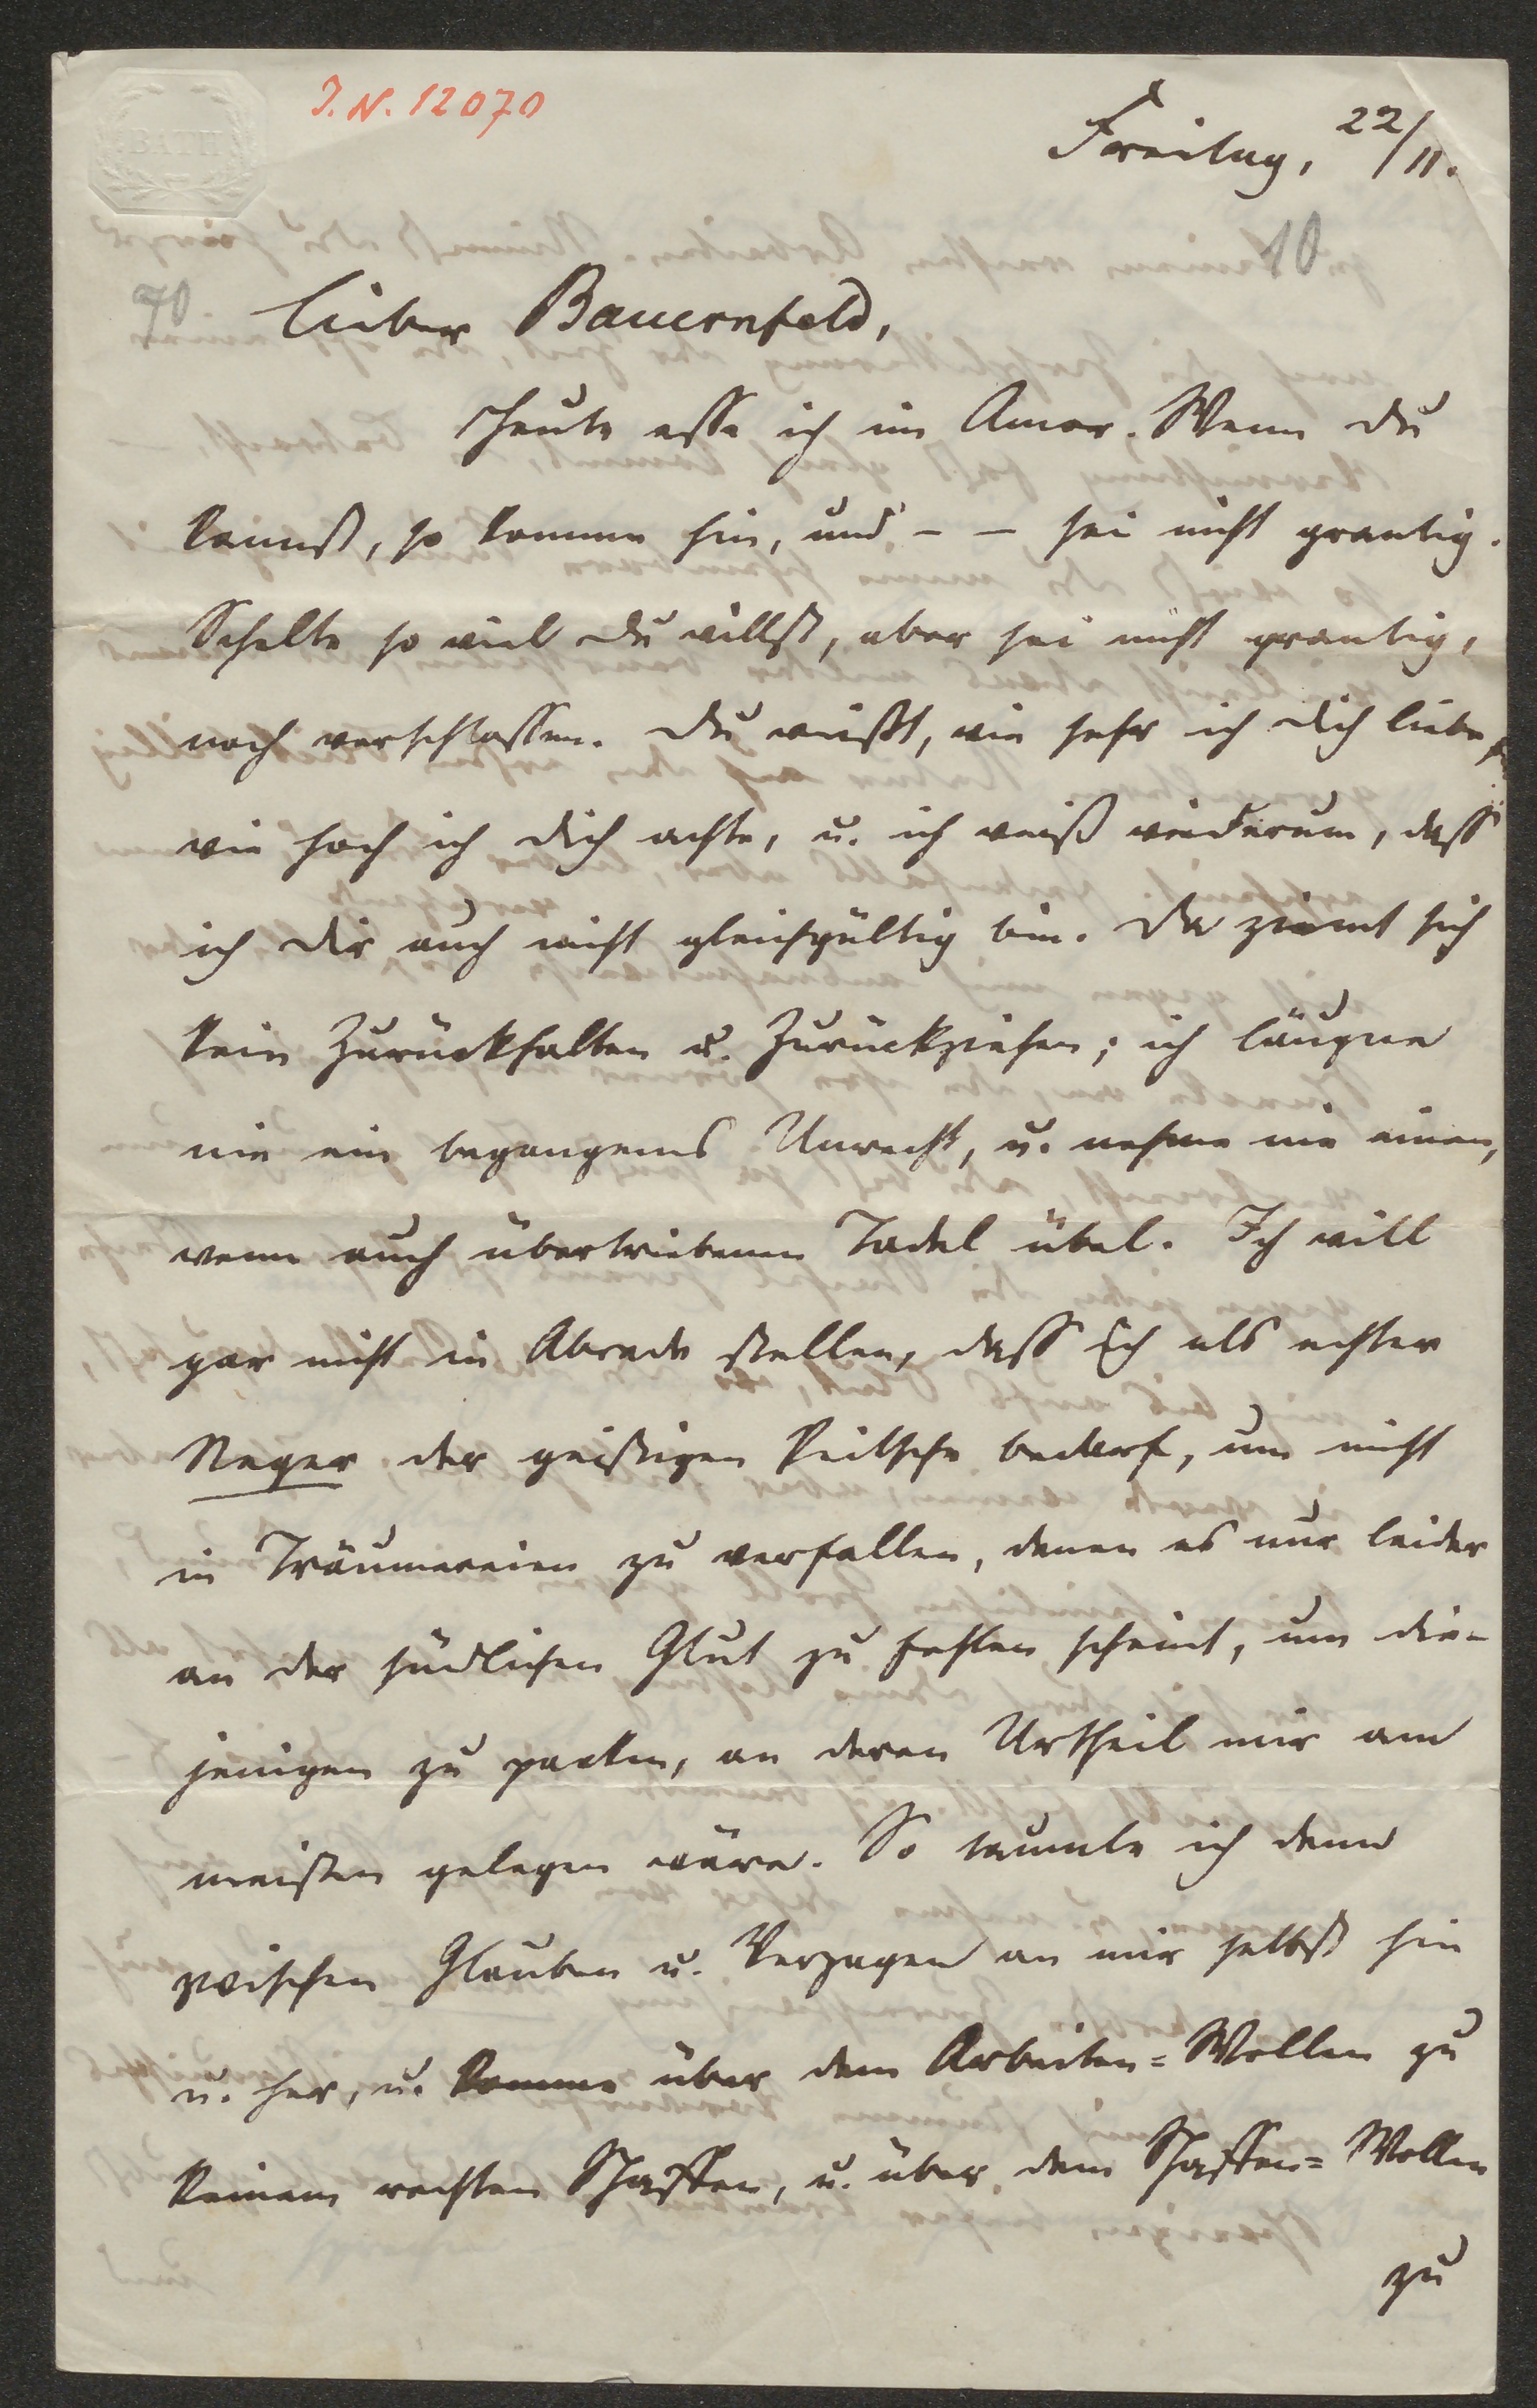 BATH
J.N. 12070
Freitag, 22/11.
10
70
Lieber Bauernfeld,
Heute esse ich im Amor. Wenn du
kannst, so komme hin, und – – sei nicht grantig.
Schelte so viel du willst, aber sei nicht grantig,
noch verschlossen. Du weißt, wie sehr ich dich liebe,
wie hoch ich dich achte, u. ich weiß wiederum, dass
ich dir auch nicht gleichgültig bin. Da ziemt sich
kein Zurückhalten u. Zurückziehen; ich läugne
nie ein begangenes Unrecht, u. nehme nie einen,
wenn auch übertriebenen Tadel übel. Ich will
gar nicht in Abrede stellen, dass ich als echter
Neger der geistigen Peitsche bedarf, um nicht
in Träumereien zu verfallen, denen es nur leider
an der südlichen Glut zu fehlen scheint, um die-
jenigen zu packen, an deren Urtheil mir am
meisten gelegen wäre. So taumle ich denn
zwischen Glauben u. Verzagen an mir selbst hin
u. her, u. komme über dem Arbeiten=Wollen zu
keinem rechten Schaffen, u. über dem Schaffen=Wollen
zu